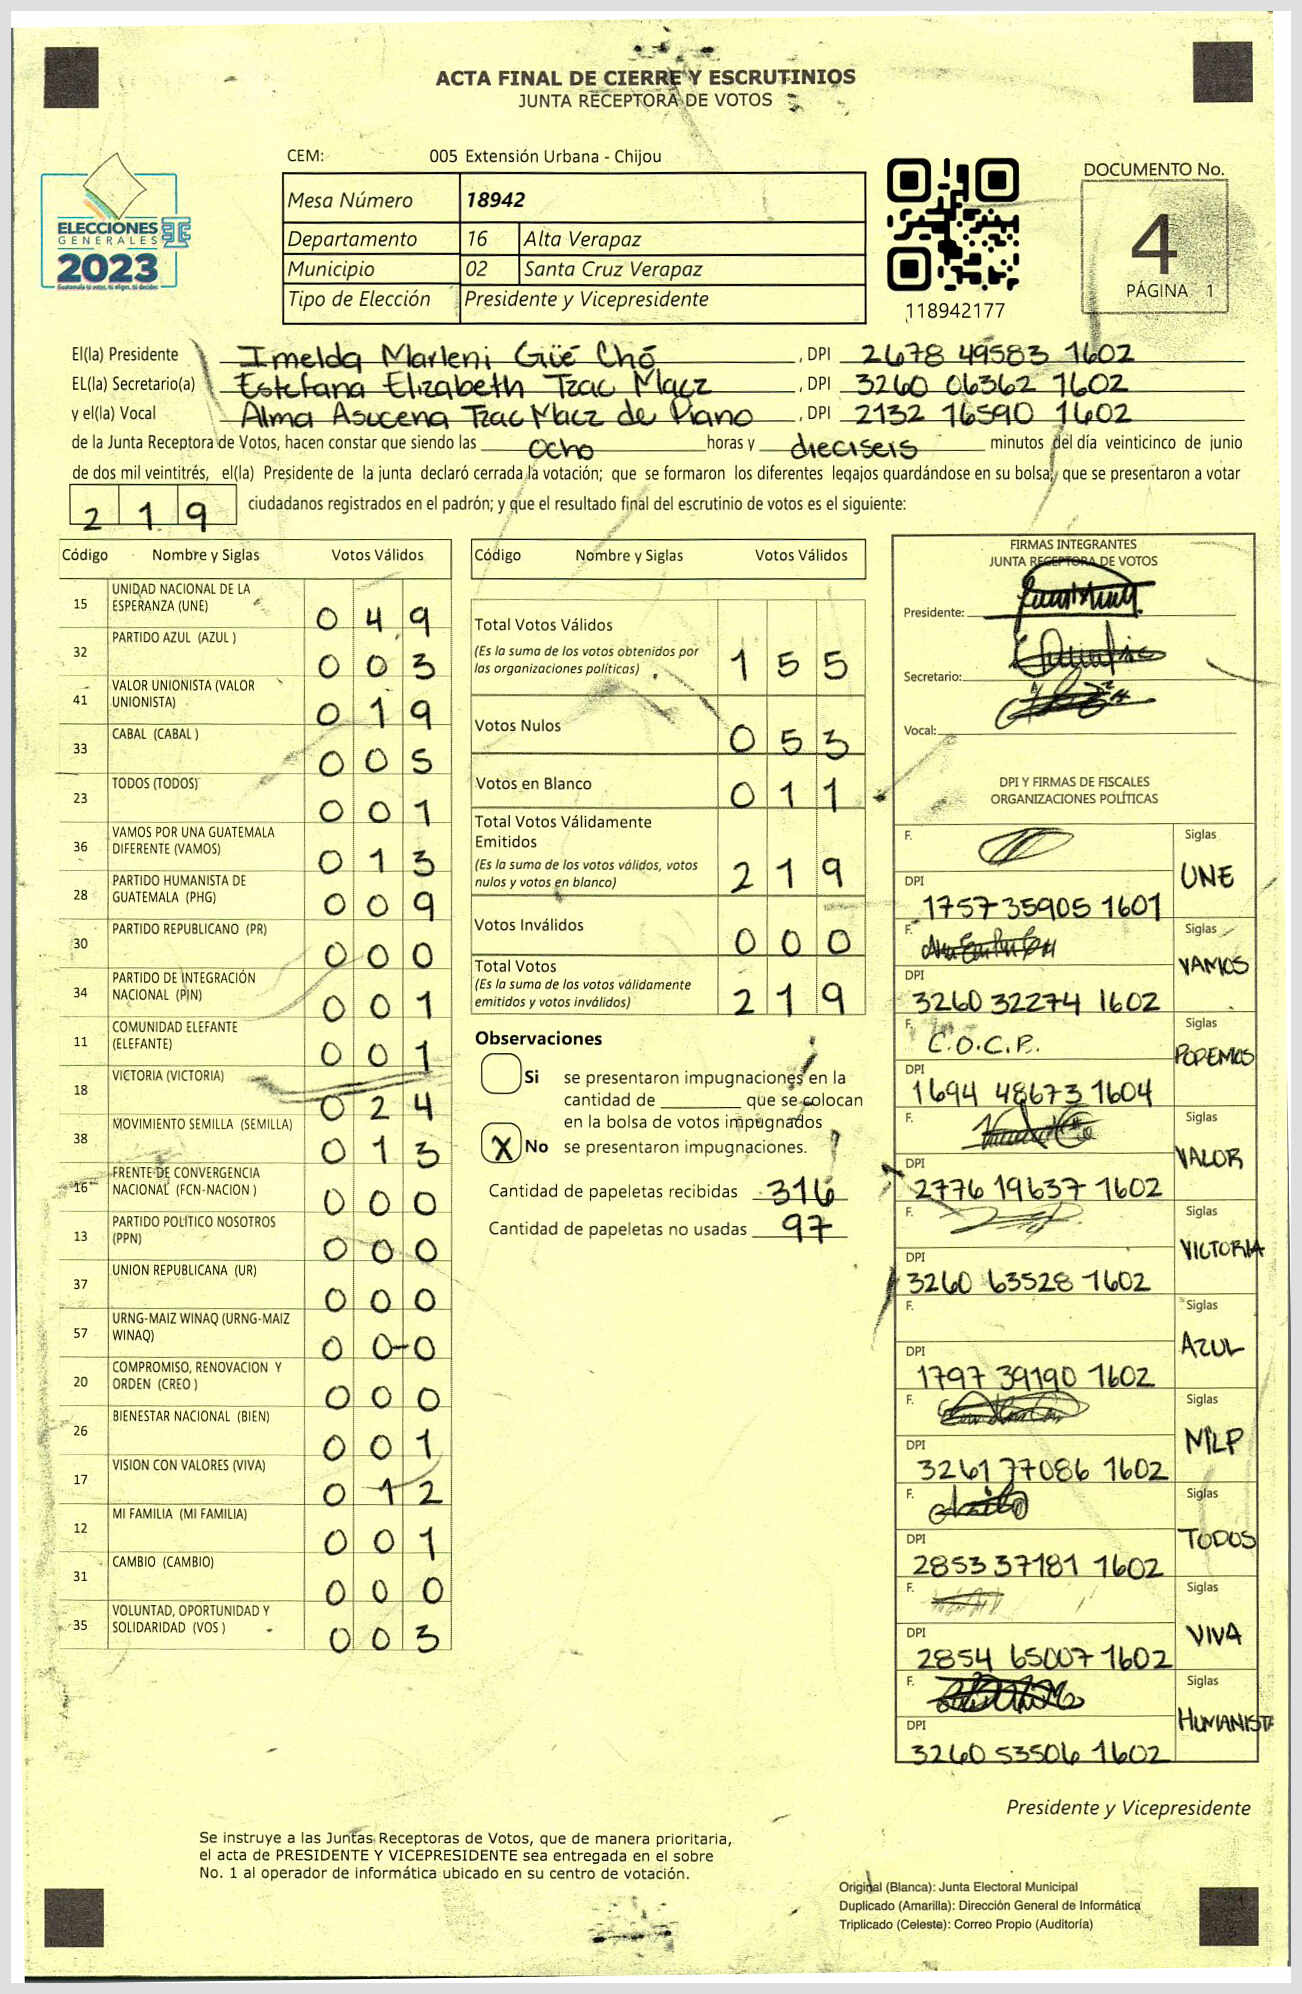 ACTA FINAL DE CIERRE Y ESCRUTINIOS
JUNTA RECEPTORA DE VOTOS
CEM: 005 Extensión Urbana - Chijou
Mesa Número 18942
Departamento 16 Alta Verapaz
Municipio 02 Santa Cruz Verapaz
Tipo de Elección Presidente y Vicepresidente
ELECCIONES
GENERALES
2023
118942177
DOCUMENTO No.
4
PÁGINA 1
El(la) Presidente Imelda Marleni Güé Chó, DPI 2678 49583 1602
EL(la) Secretario(a) Estefana Elizabeth Tzac Macz, DPI 3260 06362 1602
y el(la) Vocal Alma Asucena Tzac Macz de Piano, DPI 2132 16590 1602
de la Junta Receptora de Votos, hacen constar que siendo las ocho horas y dieciseis minutos del día veinticinco de junio
de dos mil veintitrés, el(la) Presidente de la junta declaró cerrada la votación; que se formaron los diferentes legajos guardándose en su bolsa; que se presentaron a votar
219 ciudadanos registrados en el padrón; y que el resultado final del escrutinio de votos es el siguiente:
Código Nombre y Siglas Votos Válidos
15 UNIDAD NACIONAL DE LA ESPERANZA (UNE) 049
32 PARTIDO AZUL (AZUL ) 003
41 VALOR UNIONISTA (VALOR UNIONISTA) 019
33 CABAL (CABAL ) 005
23 TODOS (TODOS) 001
36 VAMOS POR UNA GUATEMALA DIFERENTE (VAMOS) 013
28 PARTIDO HUMANISTA DE GUATEMALA (PHG) 009
30 PARTIDO REPUBLICANO (PR) 000
34 PARTIDO DE INTEGRACIÓN NACIONAL (PIN) 001
11 COMUNIDAD ELEFANTE (ELEFANTE) 001
18 VICTORIA (VICTORIA) 024
38 MOVIMIENTO SEMILLA (SEMILLA) 013
16 FRENTE DE CONVERGENCIA NACIONAL (FCN-NACION ) 000
13 PARTIDO POLÍTICO NOSOTROS (PPN) 000
37 UNION REPUBLICANA (UR) 000
57 URNG-MAIZ WINAQ (URNG-MAIZ WINAQ) 000
20 COMPROMISO, RENOVACION Y ORDEN (CREO ) 000
26 BIENESTAR NACIONAL (BIEN) 001
17 VISION CON VALORES (VIVA) 012
12 MI FAMILIA (MI FAMILIA) 001
31 CAMBIO (CAMBIO) 000
35 VOLUNTAD, OPORTUNIDAD Y SOLIDARIDAD (VOS ) 003
Código Nombre y Siglas Votos Válidos
Total Votos Válidos 155
(Es la suma de los votos obtenidos por
las organizaciones políticas)
Votos Nulos 053
Votos en Blanco 011
Total Votos Válidamente
Emitidos 219
(Es la suma de los votos válidos, votos
nulos y votos en blanco)
Votos Inválidos 000
Total Votos 219
(Es la suma de los votos válidamente
emitidos y votos inválidos)
Observaciones
Si se presentaron impugnaciones en la
cantidad de ________ que se colocan
en la bolsa de votos impugnados
X No se presentaron impugnaciones.
Cantidad de papeletas recibidas 316
Cantidad de papeletas no usadas 97
FIRMAS INTEGRANTES
JUNTA RECEPTORA DE VOTOS
Presidente:
Secretario:
Vocal:
DPI Y FIRMAS DE FISCALES
ORGANIZACIONES POLÍTICAS
F. Siglas UNE
DPI 1757 35905 1601
F. Siglas VAMOS
DPI 3260 32274 1602
F. C.O.C.P. Siglas PODEMOS
DPI 1694 48673 1604
F. Siglas VALOR
DPI 2776 19637 1602
F. Siglas VICTORIA
DPI 3260 63528 1602
F. Siglas AZUL
DPI 1797 39190 1602
F. Siglas MLP
DPI 3261 77086 1602
F. Siglas TODOS
DPI 2853 37181 1602
F. Siglas VIVA
DPI 2854 65007 1602
F. Siglas HUMANISTA
DPI 3260 53506 1602
Presidente y Vicepresidente
Se instruye a las Juntas Receptoras de Votos, que de manera prioritaria,
el acta de PRESIDENTE Y VICEPRESIDENTE sea entregada en el sobre
No. 1 al operador de informática ubicado en su centro de votación.
Original (Blanca): Junta Electoral Municipal
Duplicado (Amarilla): Dirección General de Informática
Triplicado (Celeste): Correo Propio (Auditoría)